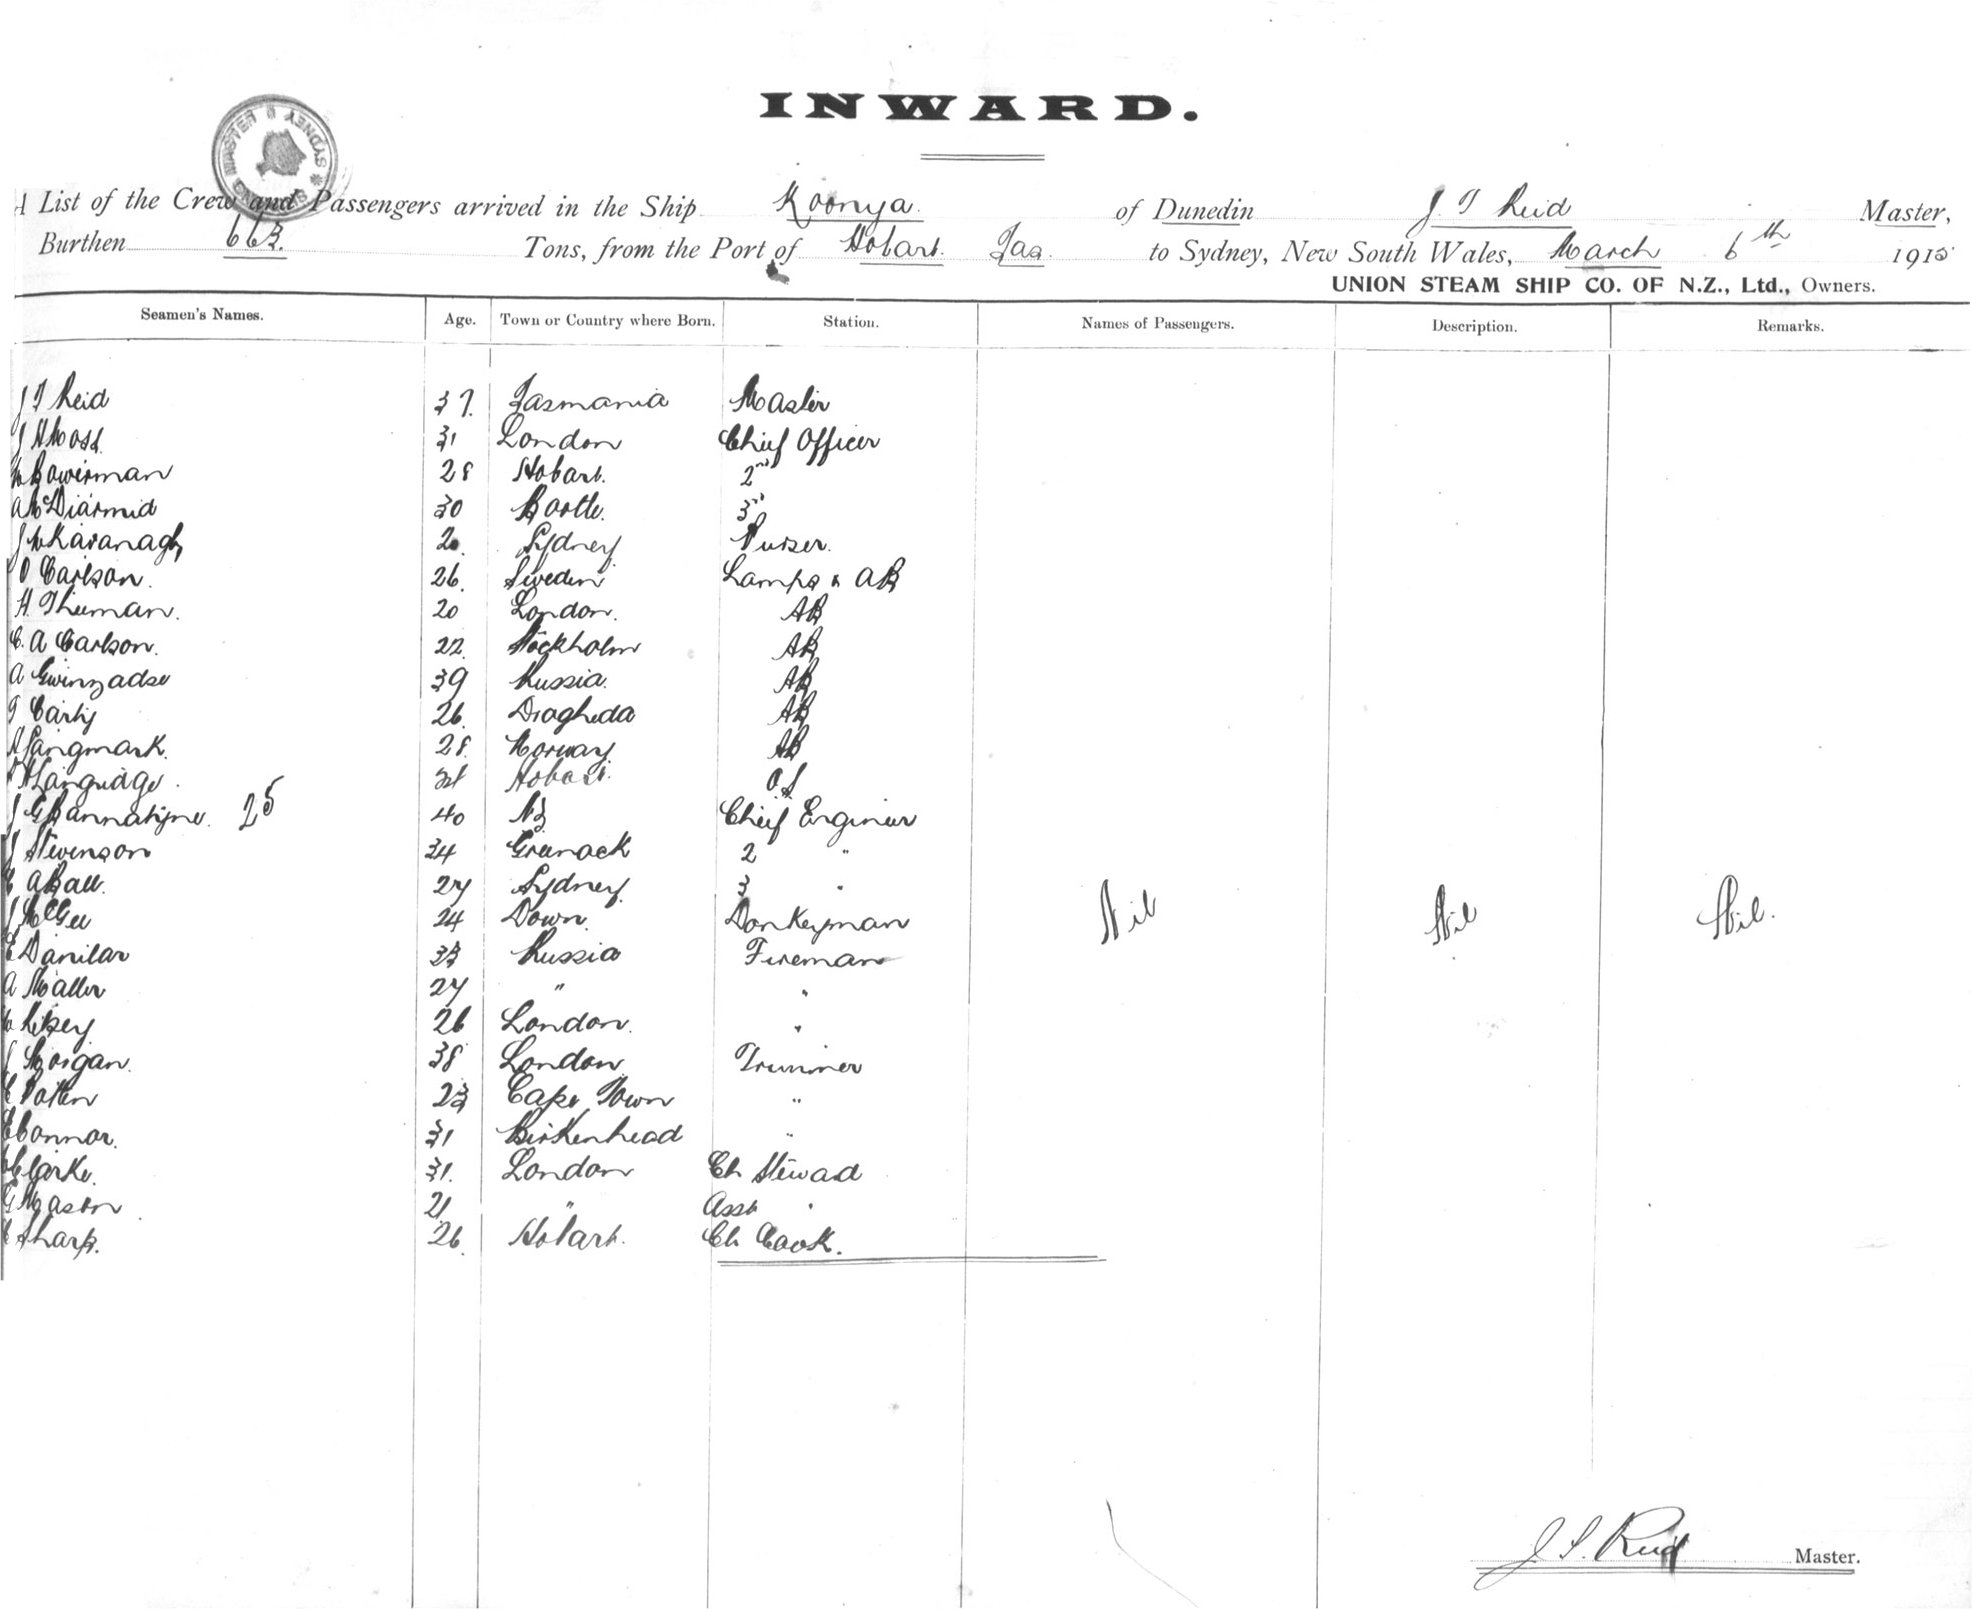 INWARD.
SHIPPING MASTER * SYDNEY *
A List of the Crew and Passengers arrived in the Ship Koonya of Dunedin J. T Reid Master,
Burthen 663. Tons, from the Port of Hobart. Tas. to Sydney, New South Wales, March 6th 1915
UNION STEAM SHIP CO. OF N.Z., Ltd., Owners.
Seamen's Names. Age. Town or Country where Born. Station. Names of Passengers. Description. Remarks.
J T Reid 37. Tasmania Master
J H Moss 31 London Chief Officer
W Bowerman 28 Hobart. 2nd
A McDiarmid 30 3rd
J W Kavanagh 20. Sydney Purser.
O Carlson. 26. Sweden Lamps & AB
H. Thieman. 20 London. AB
C. A Carlson. 22. Stockholm AB
A Gwinzadse 39 Russia. AB
T Carty 26. Drogheda AB
A Langmark. 28. Norway AB
Langridge. Hobart. O.S
J G Bannatyne. 25 40 NZ Chief Engineer
J Stevenson 34 Greenock 2 "
C A Ball. 27 Sydney 3 "
J McGee 24 Down. Donkeyman Nil Nil Nil.
E Danilar 33 Russia Fireman
A Maller 27 " "
W Livsey 26 London. "
J Morgan. 38 London Trimmer
C Potten 23 Cape Town "
E Connor. 31 Birkenhead "
W Clarke. 31. London Ch Steward
G Mason. 21 " Asst "
C Sharp. 26. Hobart. Ch Cook.
J. T. Reid Master.